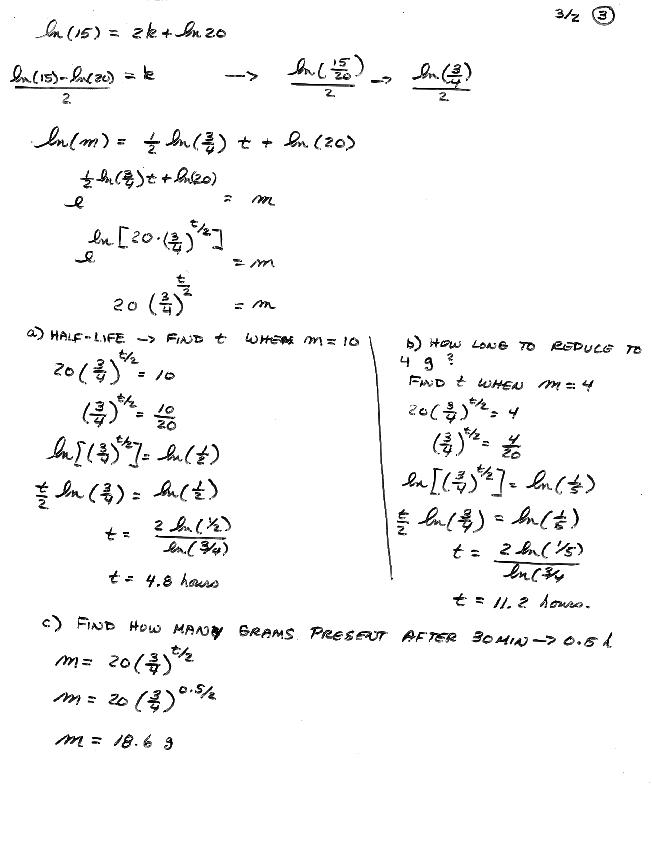 3/2 ③
ln(15) = 2k + ln 20
ln(15) - ln(20) / 2 = k → ln(15/20) / 2 → ln(3/4) / 2
ln(m) = 1/2 ln(3/4) t + ln(20)
e^(1/2 ln(3/4)t + ln(20)) = m
e^(ln[20·(3/4)^(t/2)]) = m
20 (3/4)^(t/2) = m
a) HALF-LIFE → FIND t WHEN m = 10
20(3/4)^(t/2) = 10
(3/4)^(t/2) = 10/20
ln[(3/4)^(t/2)] = ln(1/2)
t/2 ln(3/4) = ln(1/2)
t = 2 ln(1/2) / ln(3/4)
t = 4.8 hours
b) HOW LONG TO REDUCE TO
4 g ?
FIND t WHEN m = 4
20(3/4)^(t/2) = 4
(3/4)^(t/2) = 4/20
ln[(3/4)^(t/2)] = ln(1/5)
t/2 ln(3/4) = ln(1/5)
t = 2 ln(1/5) / ln(3/4
t = 11.2 hours.
c) FIND HOW MANY GRAMS PRESENT AFTER 30 MIN → 0.5 h
m = 20(3/4)^(t/2)
m = 20(3/4)^(0.5/2)
m = 18.6 g